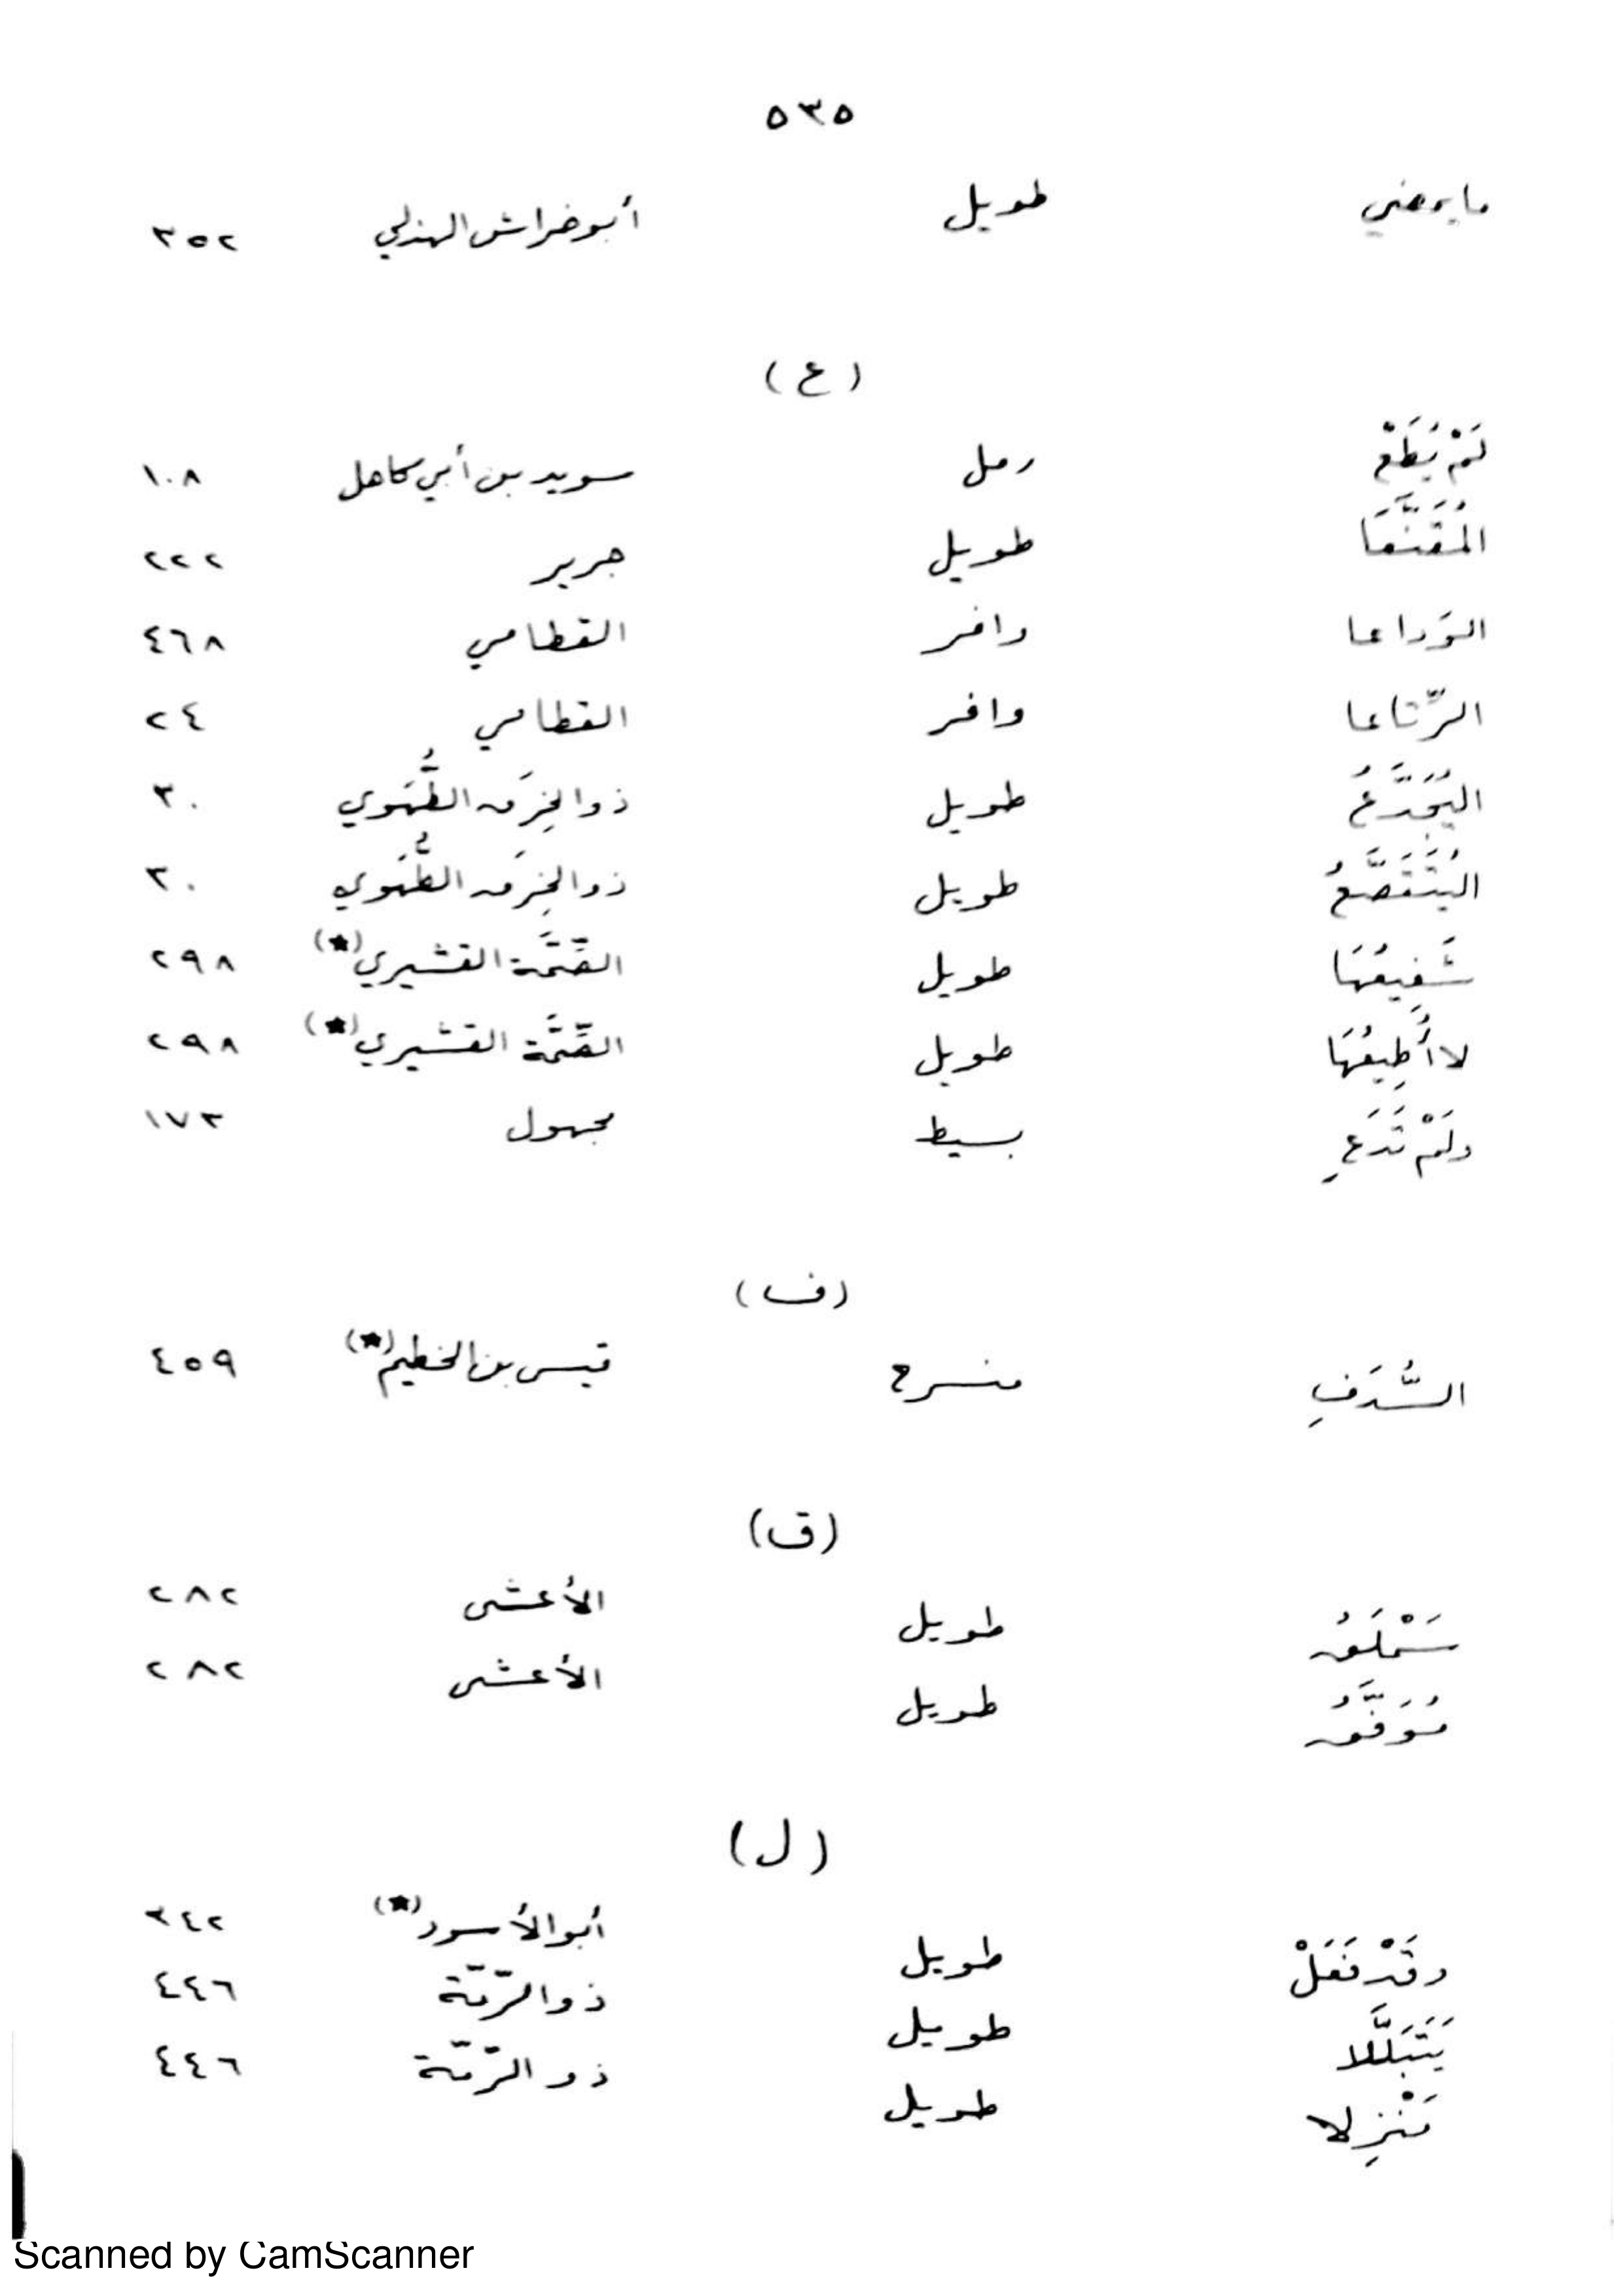 ٥٣٥
ما يمضي طويل أبو خراش الهذلي ٣٥٢
(ع)
لَمْ يُطَعْ رمل سويد بن أبي كاهل ١٠٨
المُقَنَّعَا طويل جرير ٢٢٢
الوَداعا وافر القطامي ٤٦٨
الرِّتاعا وافر القطامي ٢٤
اليُجَدَّعُ طويل ذو الخِرَق الطُّهَوي ٣٠
اليُتَقَصَّعُ طويل ذو الخِرَق الطُّهَوي ٣٠
شَفِيعُهَا طويل الصِّمَّة القشيري (★) ٢٩٨
لا أُطِيعُهَا طويل الصِّمَّة القشيري (★) ٢٩٨
ولَمْ تَدَعِ بسيط مجهول ١٧٣
(ف)
السُّدَفِ منسرح قيس بن الخطيم (★) ٤٥٩
(ق)
سَمْلَقُ طويل الأعشى ٢٨٢
مُوَفَّقُ طويل الأعشى ٢٨٢
(ل)
وقَدْ فَعَلْ طويل أبو الأسود (★) ٣٤٢
يَتَبَلَّلا طويل ذو الرّمّة ٤٤٦
مَنْزِلا طويل ذو الرّمّة ٤٤٦
Scanned by CamScanner